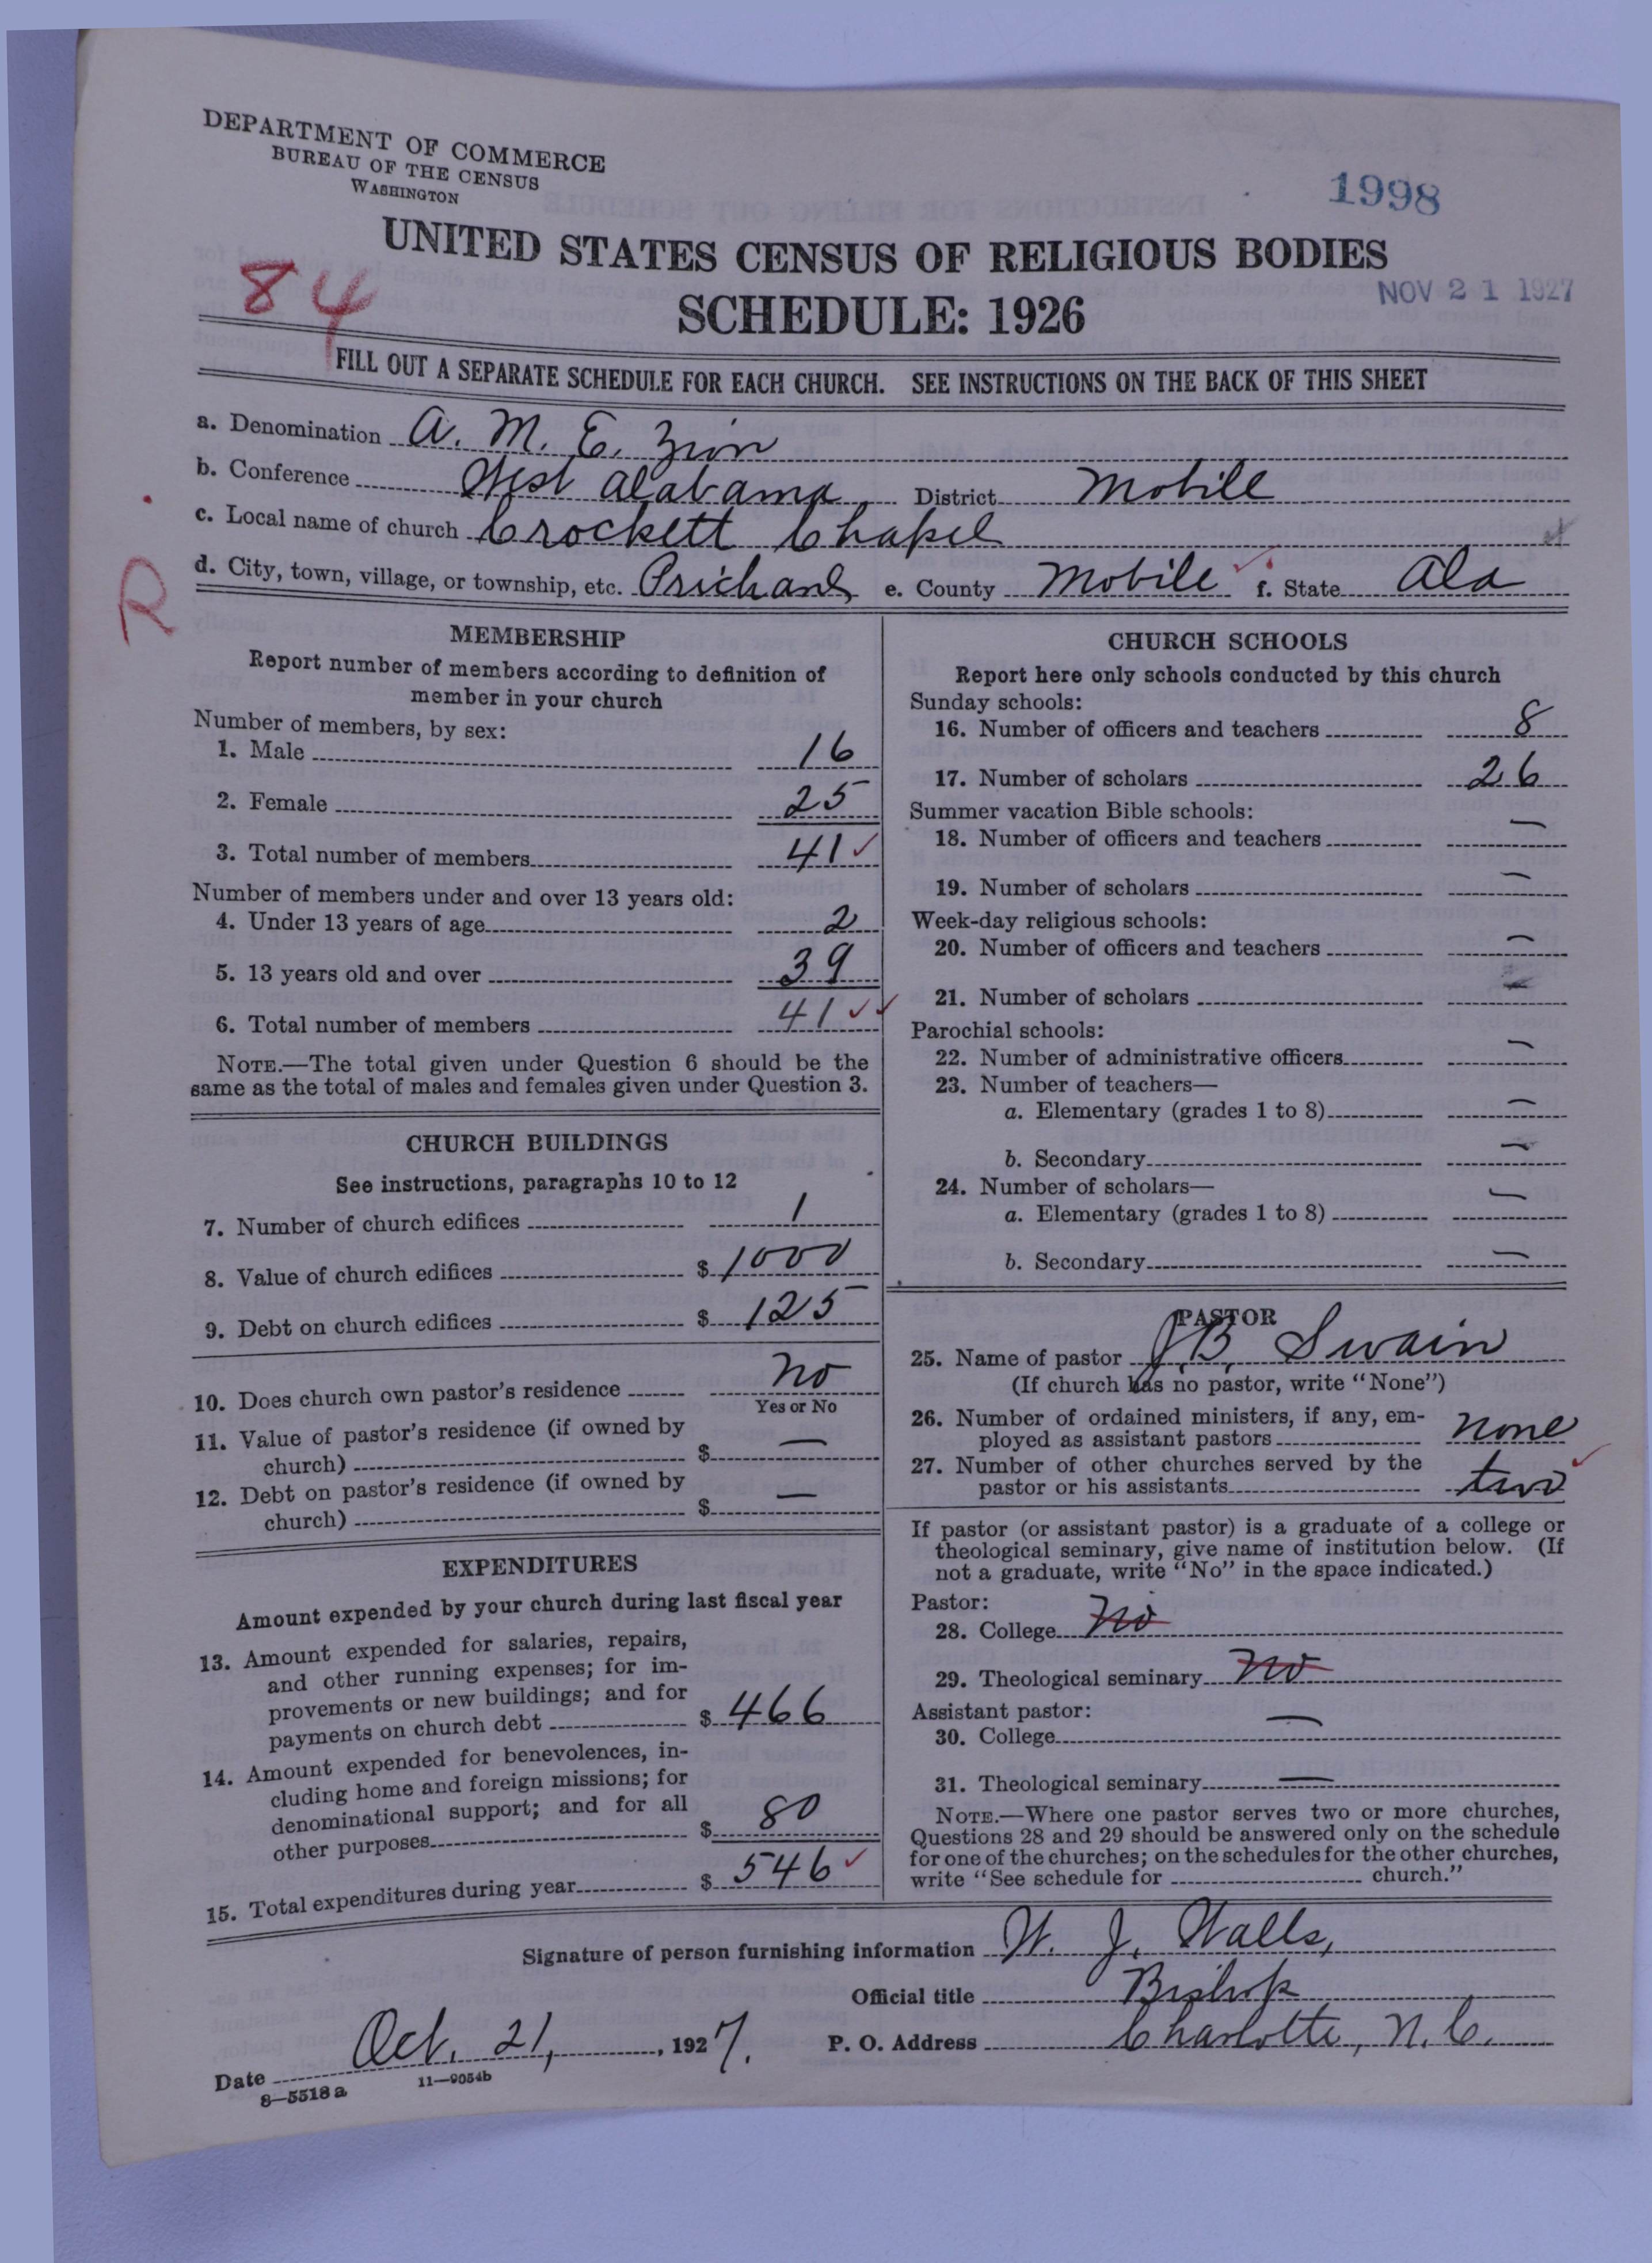 DEPARTMENT OF COMMERCE
BUREAU OF THE CENSUS
WASHINGTON
1998
UNITED STATES CENSUS OF RELIGIOUS BODIES
84
NOV 21 1927
SCHEDULE: 1926
FILL OUT A SEPARATE SCHEDULE FOR EACH CHURCH. SEE INSTRUCTIONS ON THE BACK OF THIS SHEET
a. Denomination A. M. E. Zion
b. Conference West Alabama District Mobile
c. Local name of church Crockett Chapel
d. City, town, village, or township, etc. Prichard e. County Mobile f. State Ala
R
MEMBERSHIP
Report number of members according to definition of
member in your church
Number of members, by sex:
1. Male 16
2. Female 25
3. Total number of members 41
Number of members under and over 13 years old:
4. Under 13 years of age 2
5. 13 years old and over 39
6. Total number of members 41
NOTE.—The total given under Question 6 should be the
same as the total of males and females given under Question 3.
CHURCH BUILDINGS
See instructions, paragraphs 10 to 12
7. Number of church edifices 1
8. Value of church edifices $ 1000
9. Debt on church edifices $ 125
10. Does church own pastor's residence no
Yes or No
11. Value of pastor's residence (if owned by
church) $ —
12. Debt on pastor's residence (if owned by
church) $ —
EXPENDITURES
Amount expended by your church during last fiscal year
13. Amount expended for salaries, repairs,
and other running expenses; for im-
provements or new buildings; and for
payments on church debt $ 466
14. Amount expended for benevolences, in-
cluding home and foreign missions; for
denominational support; and for all
other purposes $ 80
15. Total expenditures during year $ 546
CHURCH SCHOOLS
Report here only schools conducted by this church
Sunday schools:
16. Number of officers and teachers 8
17. Number of scholars 26
Summer vacation Bible schools:
18. Number of officers and teachers —
19. Number of scholars —
Week-day religious schools:
20. Number of officers and teachers —
21. Number of scholars —
Parochial schools:
22. Number of administrative officers —
23. Number of teachers—
a. Elementary (grades 1 to 8) —
b. Secondary —
24. Number of scholars—
a. Elementary (grades 1 to 8) —
b. Secondary —
PASTOR
25. Name of pastor J. B. Swain
(If church has no pastor, write "None")
26. Number of ordained ministers, if any, em-
ployed as assistant pastors none
27. Number of other churches served by the
pastor or his assistants two
If pastor (or assistant pastor) is a graduate of a college or
theological seminary, give name of institution below. (If
not a graduate, write "No" in the space indicated.)
Pastor:
28. College No
29. Theological seminary No
Assistant pastor:
30. College —
31. Theological seminary —
NOTE.—Where one pastor serves two or more churches,
Questions 28 and 29 should be answered only on the schedule
for one of the churches; on the schedules for the other churches,
write "See schedule for church."
Signature of person furnishing information W. J. Walls,
Official title Bishop
Date Oct. 21, 1927. P. O. Address Charlotte, N. C.
8—5518a 11—9054b